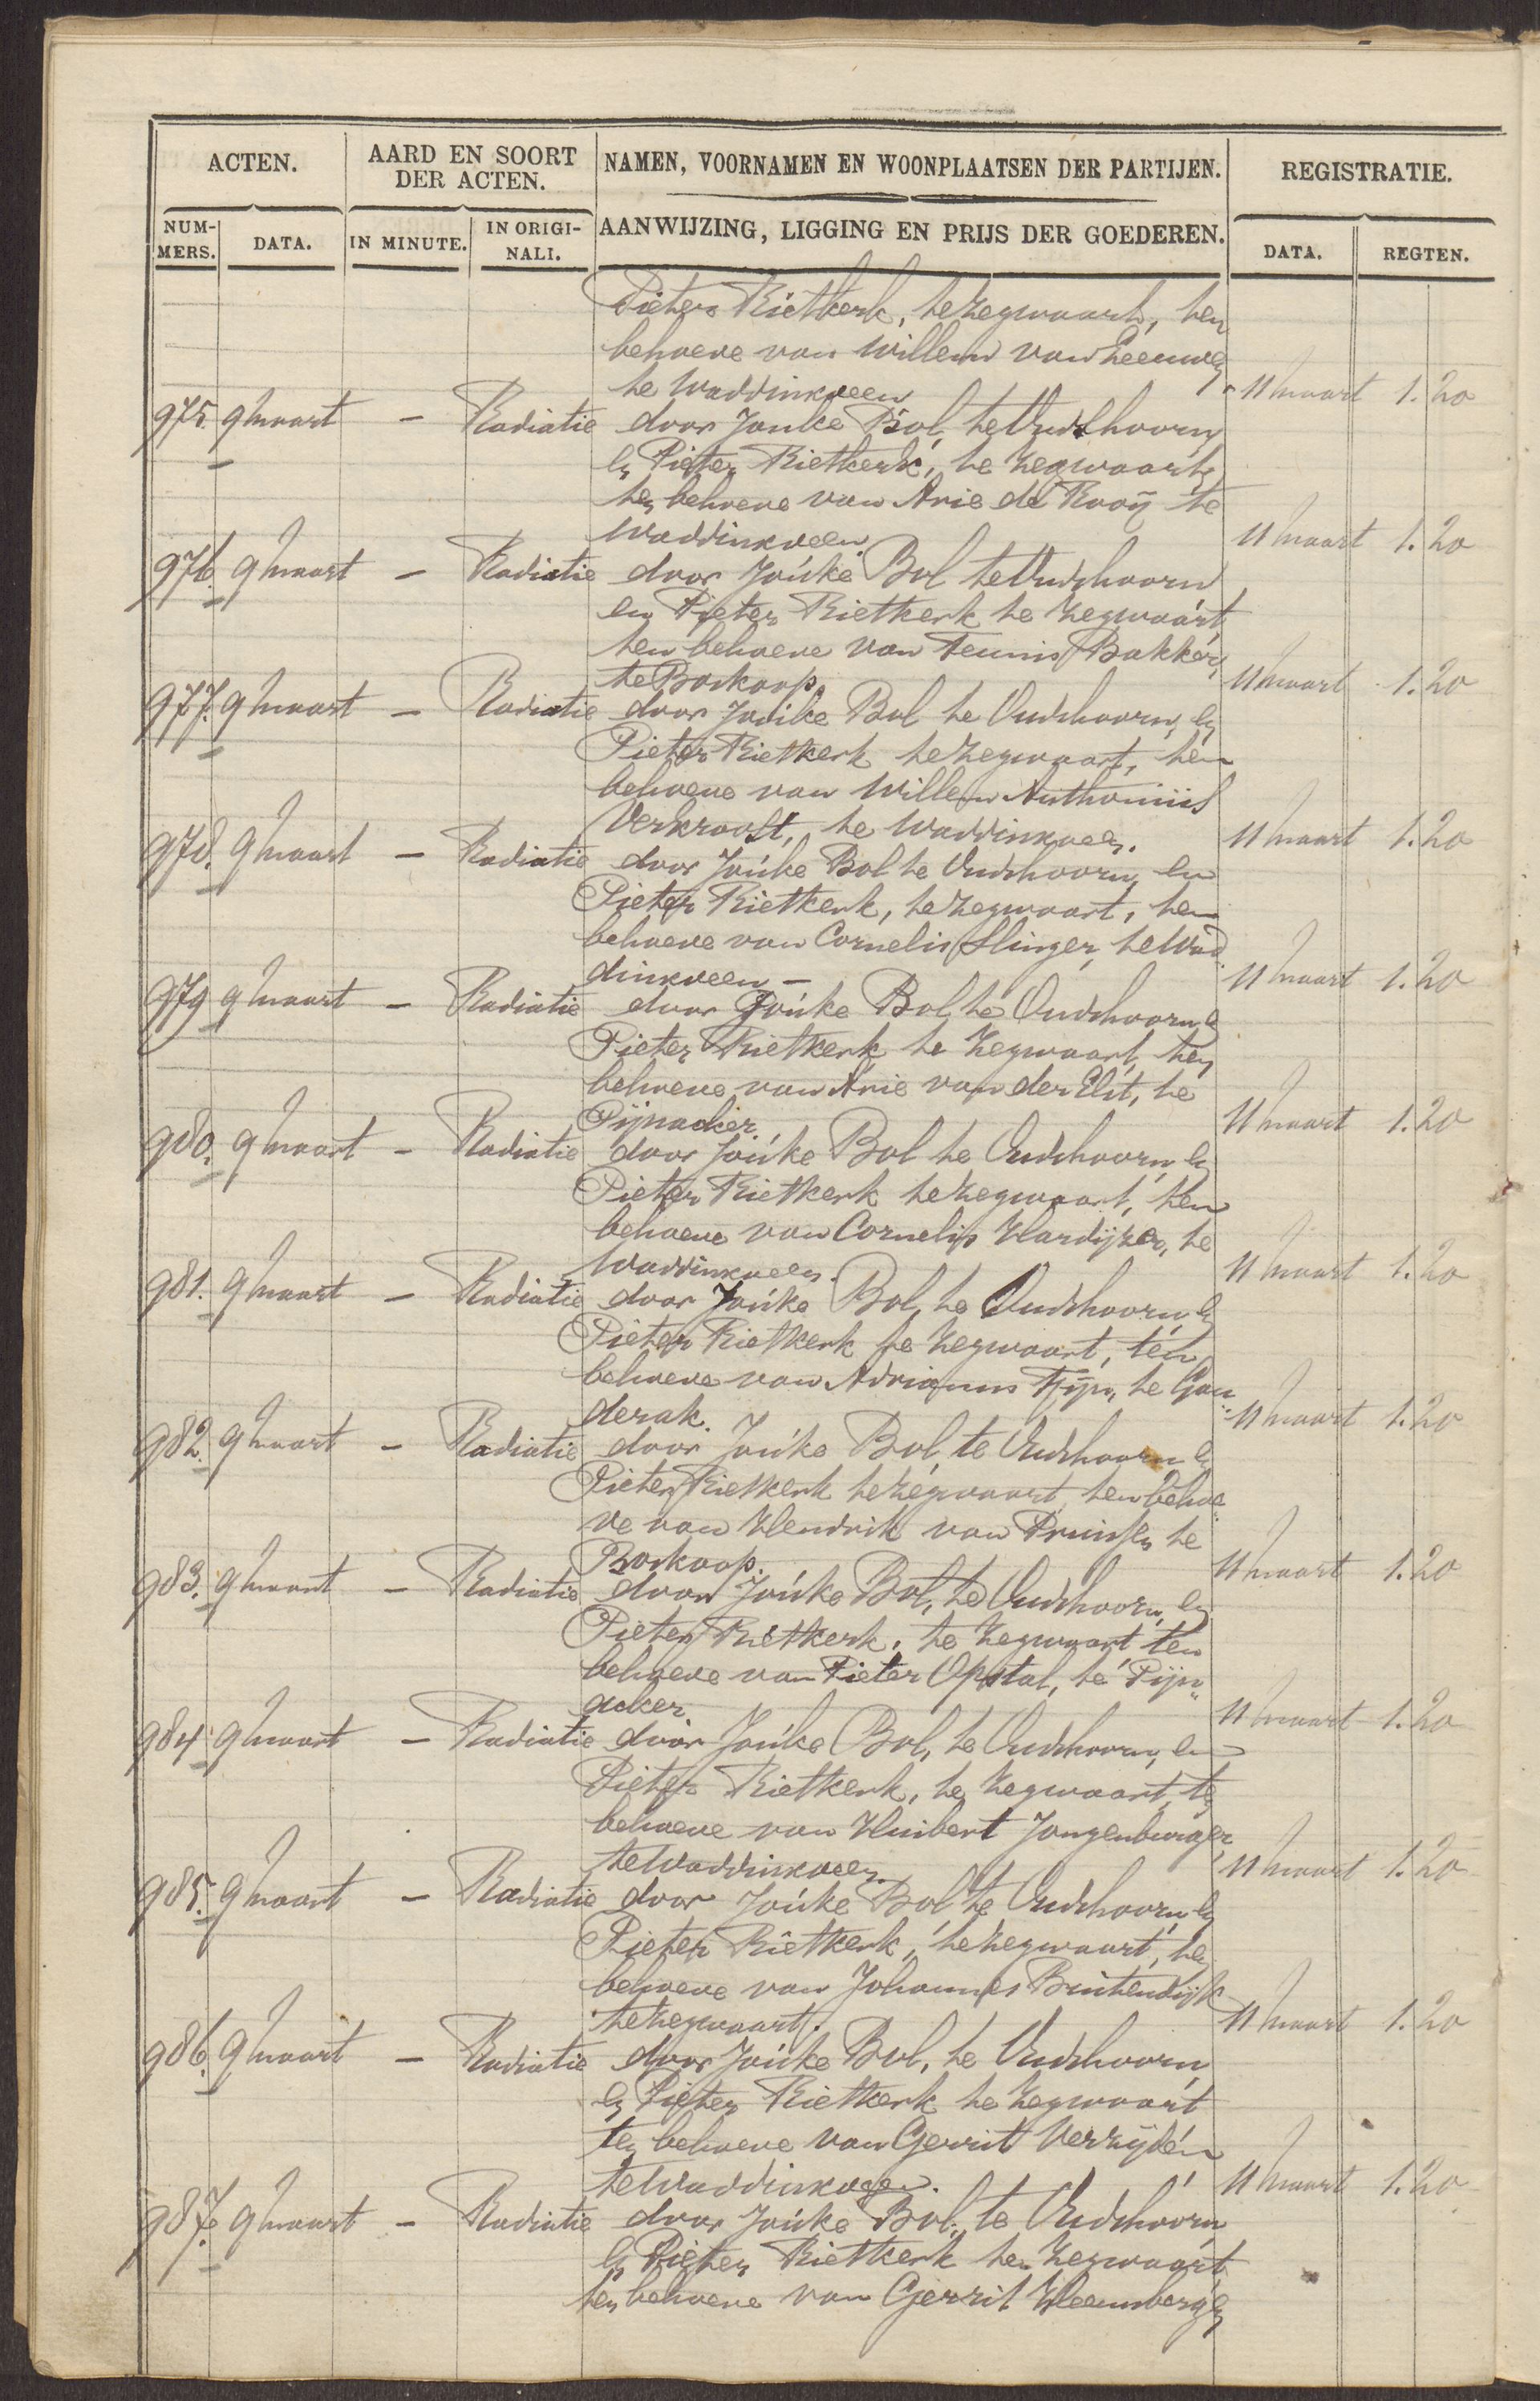 ACTEN. AARD EN SOORT DER ACTEN. NAMEN, VOORNAMEN EN WOONPLAATSEN DER PARTIJEN. REGISTRATIE.
NUMMERS. DATA. IN MINUTE. IN ORIGINALI. AANWIJZING, LIGGING EN PRIJS DER GOEDEREN. DATA. REGTEN.
Pieter Rietkerk, te Zegwaart, ten
behoeve van Willem van Leeuwen
te Waddinxveen 11 maart 1.20
975. 9 maart - Radiatie door Jouke Bol, te Oudshoorn
en Pieter Rietkerk, te Zegwaart,
ten behoeve van Arie de Rooij te
Waddinxveen. 11 maart 1.20
976. 9 maart - Radiatie door Jouke Bol te Oudshoorn
en Pieter Rietkerk te Zegwaart
ten behoeve van Teunis Bakker,
te Boskoop. 11 maart 1.20
977. 9 maart - Radiatie door Jouke Bol te Oudshoorn, en
Pieter Rietkerk te Zegwaart, ten
behoeve van Willem Anthonius
Verkroost, te Waddinxveen. 11 maart 1.20
978. 9 maart - Radiatie door Jouke Bol te Oudshoorn, en
Pieter Rietkerk, te Zegwaart, ten
behoeve van Cornelis Slinger, te Wad
dinxveen - 11 maart 1.20
979 9 maart - Radiatie door Jouke Bol, te Oudshoorn en
Pieter Rietkerk te Zegwaart, ten
behoeve van Arie van der Elst, te
Pijnacker. 11 maart 1.20
980. 9 maart - Radiatie door Jouke Bol te Oudshoorn, en
Pieter Rietkerk te Zegwaart, ten
behoeve van Cornelis Hardijzer, te
Waddinxveen. 11 maart 1.20
981. 9 maart - Radiatie door Jouke Bol, te Oudshoorn, en
Pieter Rietkerk te Zegwaart, ten
behoeve van Adrianus Fijn, te Gou
derak. 11 maart 1.20
982. 9 maart - Radiatie door Jouke Bol, te Oudshoorn en
Pieter Rietkerk te Zegwaart, ten behoe
ve van Hendrik van Pruissen te
Boskoop. 11 maart 1.20
983. 9 maart - Radiatie door Jouke Bol, te Oudshoorn, en
Pieter Rietkerk, te Zegwaart ten
behoeve van Pieter Opstal, te Pijn"
acker. 11 maart 1.20
984 9 maart - Radiatie door Jouke Bol, te Oudshoorn, en
Pieter Rietkerk, te Zegwaart, ten
behoeve van Huibert Jongenburger,
te Waddinxveen. 11 maart 1.20
985. 9 maart - Radiatie door Jouke Bol te Oudshoorn, en
Pieter Rietkerk, te Zegwaart, ten
behoeve van Johannes Buitendijk
te Zegwaart. 11 maart 1.20
986. 9 maart - Radiatie door Jouke Bol, te Oudshoorn,
en Pieter Rietkerk te Zegwaart
ten behoeve van Gerrit Verzijden
te Waddinxveen. 11 maart 1.20
987. 9 maart - Radiatie door Jouke Bol, te Oudshoorn
en Pieter Rietkerk te Zegwaart,
ten behoeve van Gerrit Heemsbergen